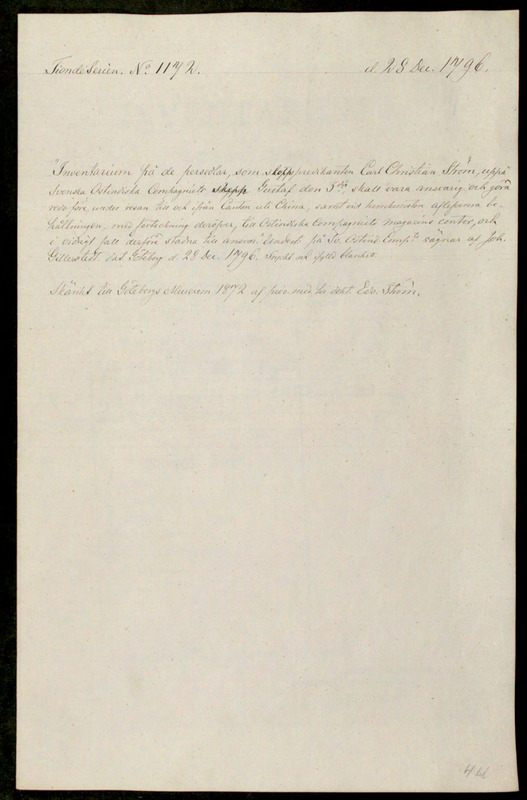 Tionde Serien. No 1172. d. 28 Dec. 1796.
"Inventarium på de persedlar, som skeppspredikanten Carl Christian Ström, uppå
Svenska Ostindiska Compagniets skepp Gustaf den 3dje, skall vara ansvarig och göra
redo före, under resan till och ifrån Canton uti China, samt vid hemkomsten aflefverera be-
hållningen, med förteckning deröfver, till Ostindiska Compagniets magasins contor, och
i vidrigt fall derföre stadna till ansvar. Underst på Sv. Ostind. Comp:ts vägnar af Joh.
Gillerstedt dat Göteborg d 28 Dec. 1796. Tryckt och ifylld blankett.
Skänkt till Göteborgs Museum 1872 af med. Edv. Ström.